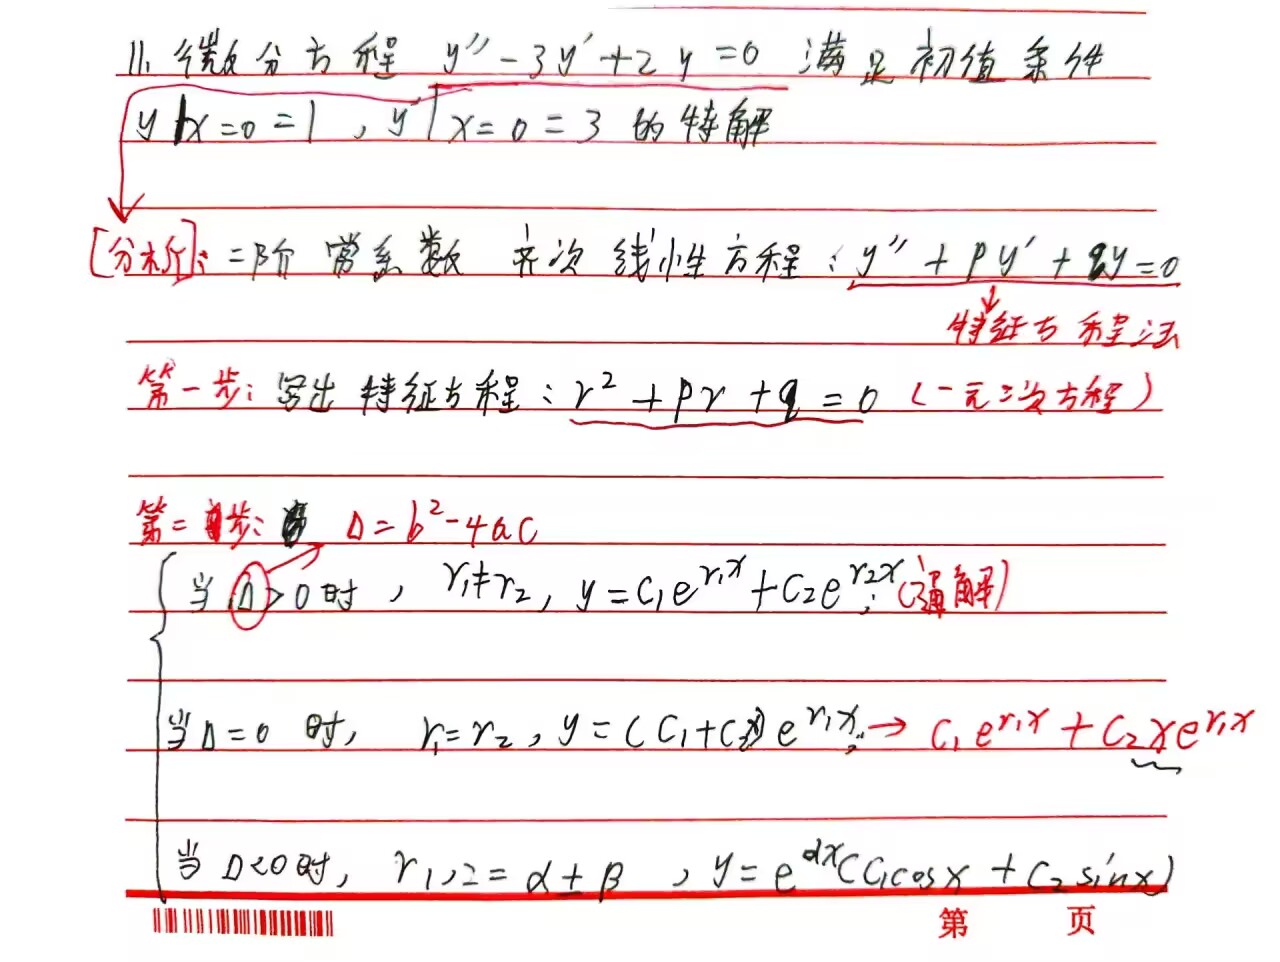 11. 微分方程 y″-3y′+2y=0 满足初值条件
y|x=0=1, y′|x=0=3 的特解
[分析]: 二阶常系数齐次线性方程: y″+py′+qy=0
特征方程法
第一步: 写出特征方程: r²+pr+q=0 (一元二次方程)
第二步: Δ=b²-4ac
当Δ>0时, r₁≠r₂, y=C₁e^{r₁x}+C₂e^{r₂x}; (通解)
当Δ=0时, r₁=r₂, y=(C₁+C₂x)e^{r₁x}; → C₁e^{r₁x}+C₂xe^{r₁x}
当Δ<0时, r₁,₂=α±β, y=e^{αx}(C₁cosx+C₂sinx)
第 页